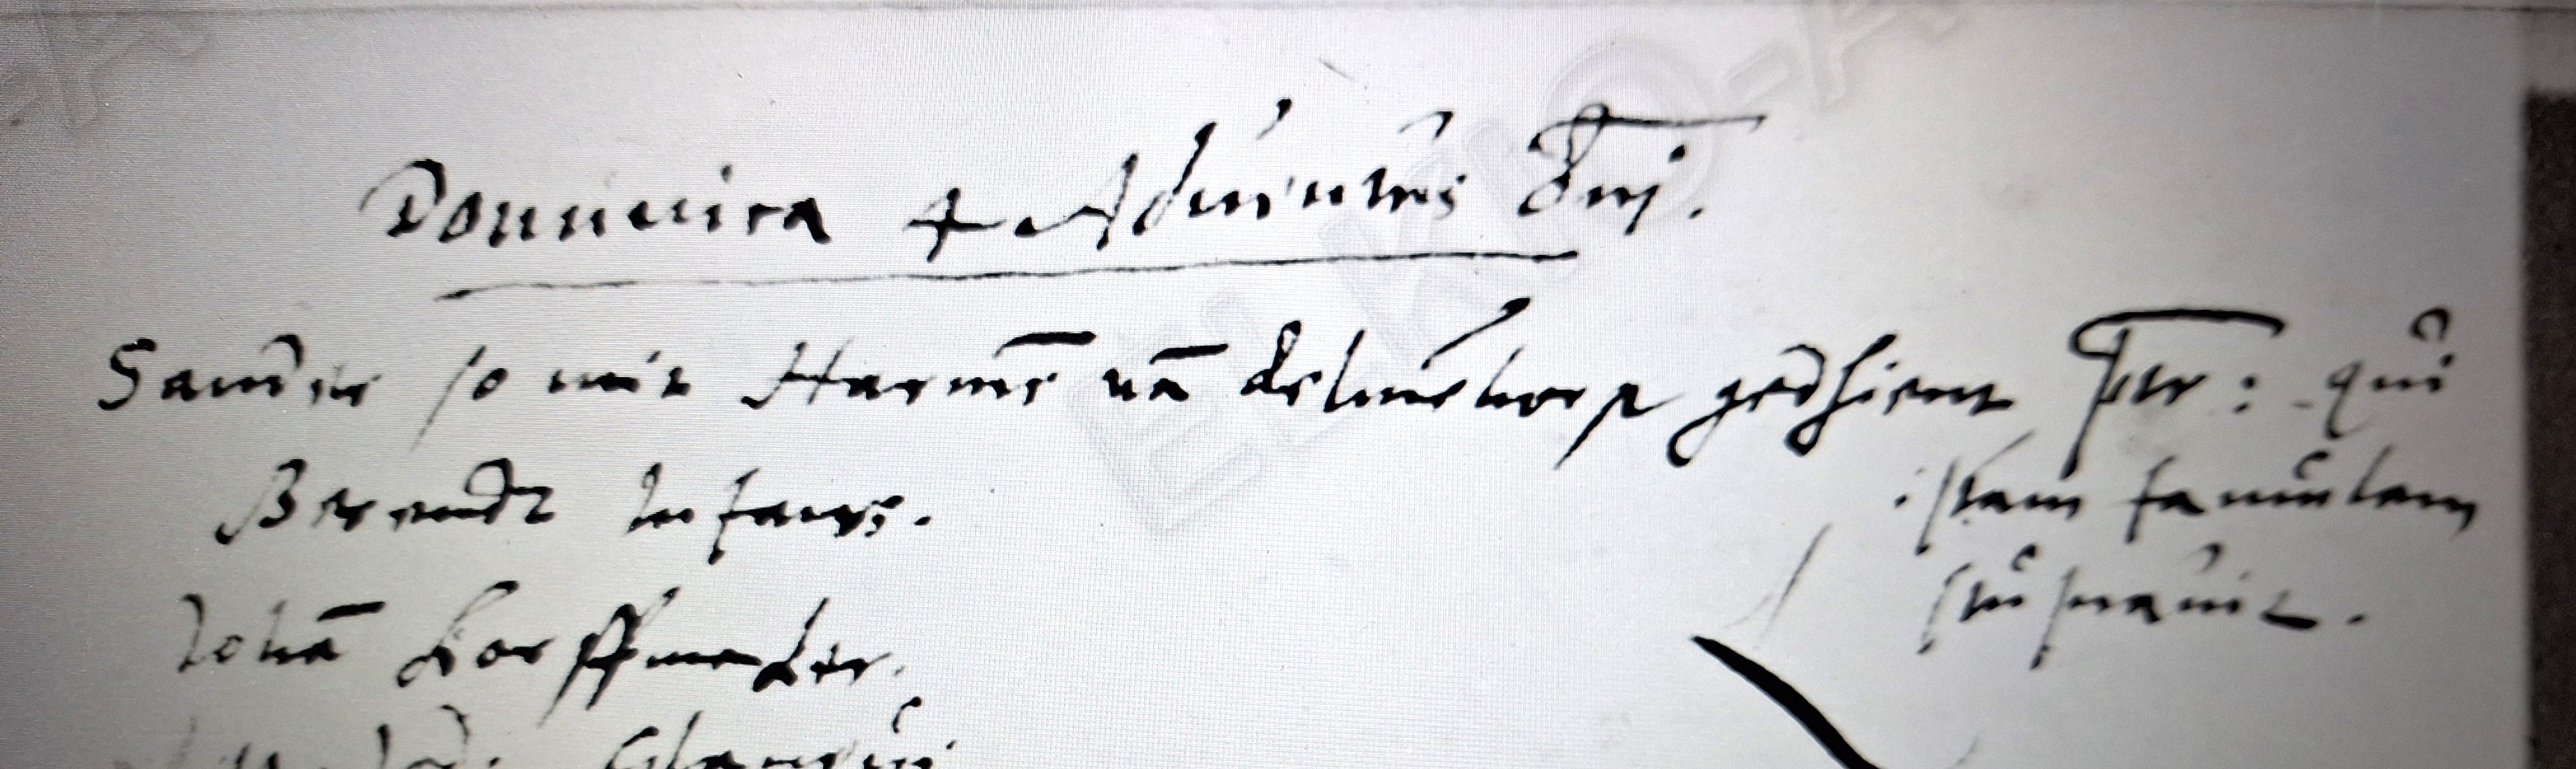 Dominica 4 Adventus Dnj.
Sander so mit Harmē vā Delmēhorst gedhient pr: qui
Berendt Infans.
istam famulam
stupravit.
Johā Korffmaker.